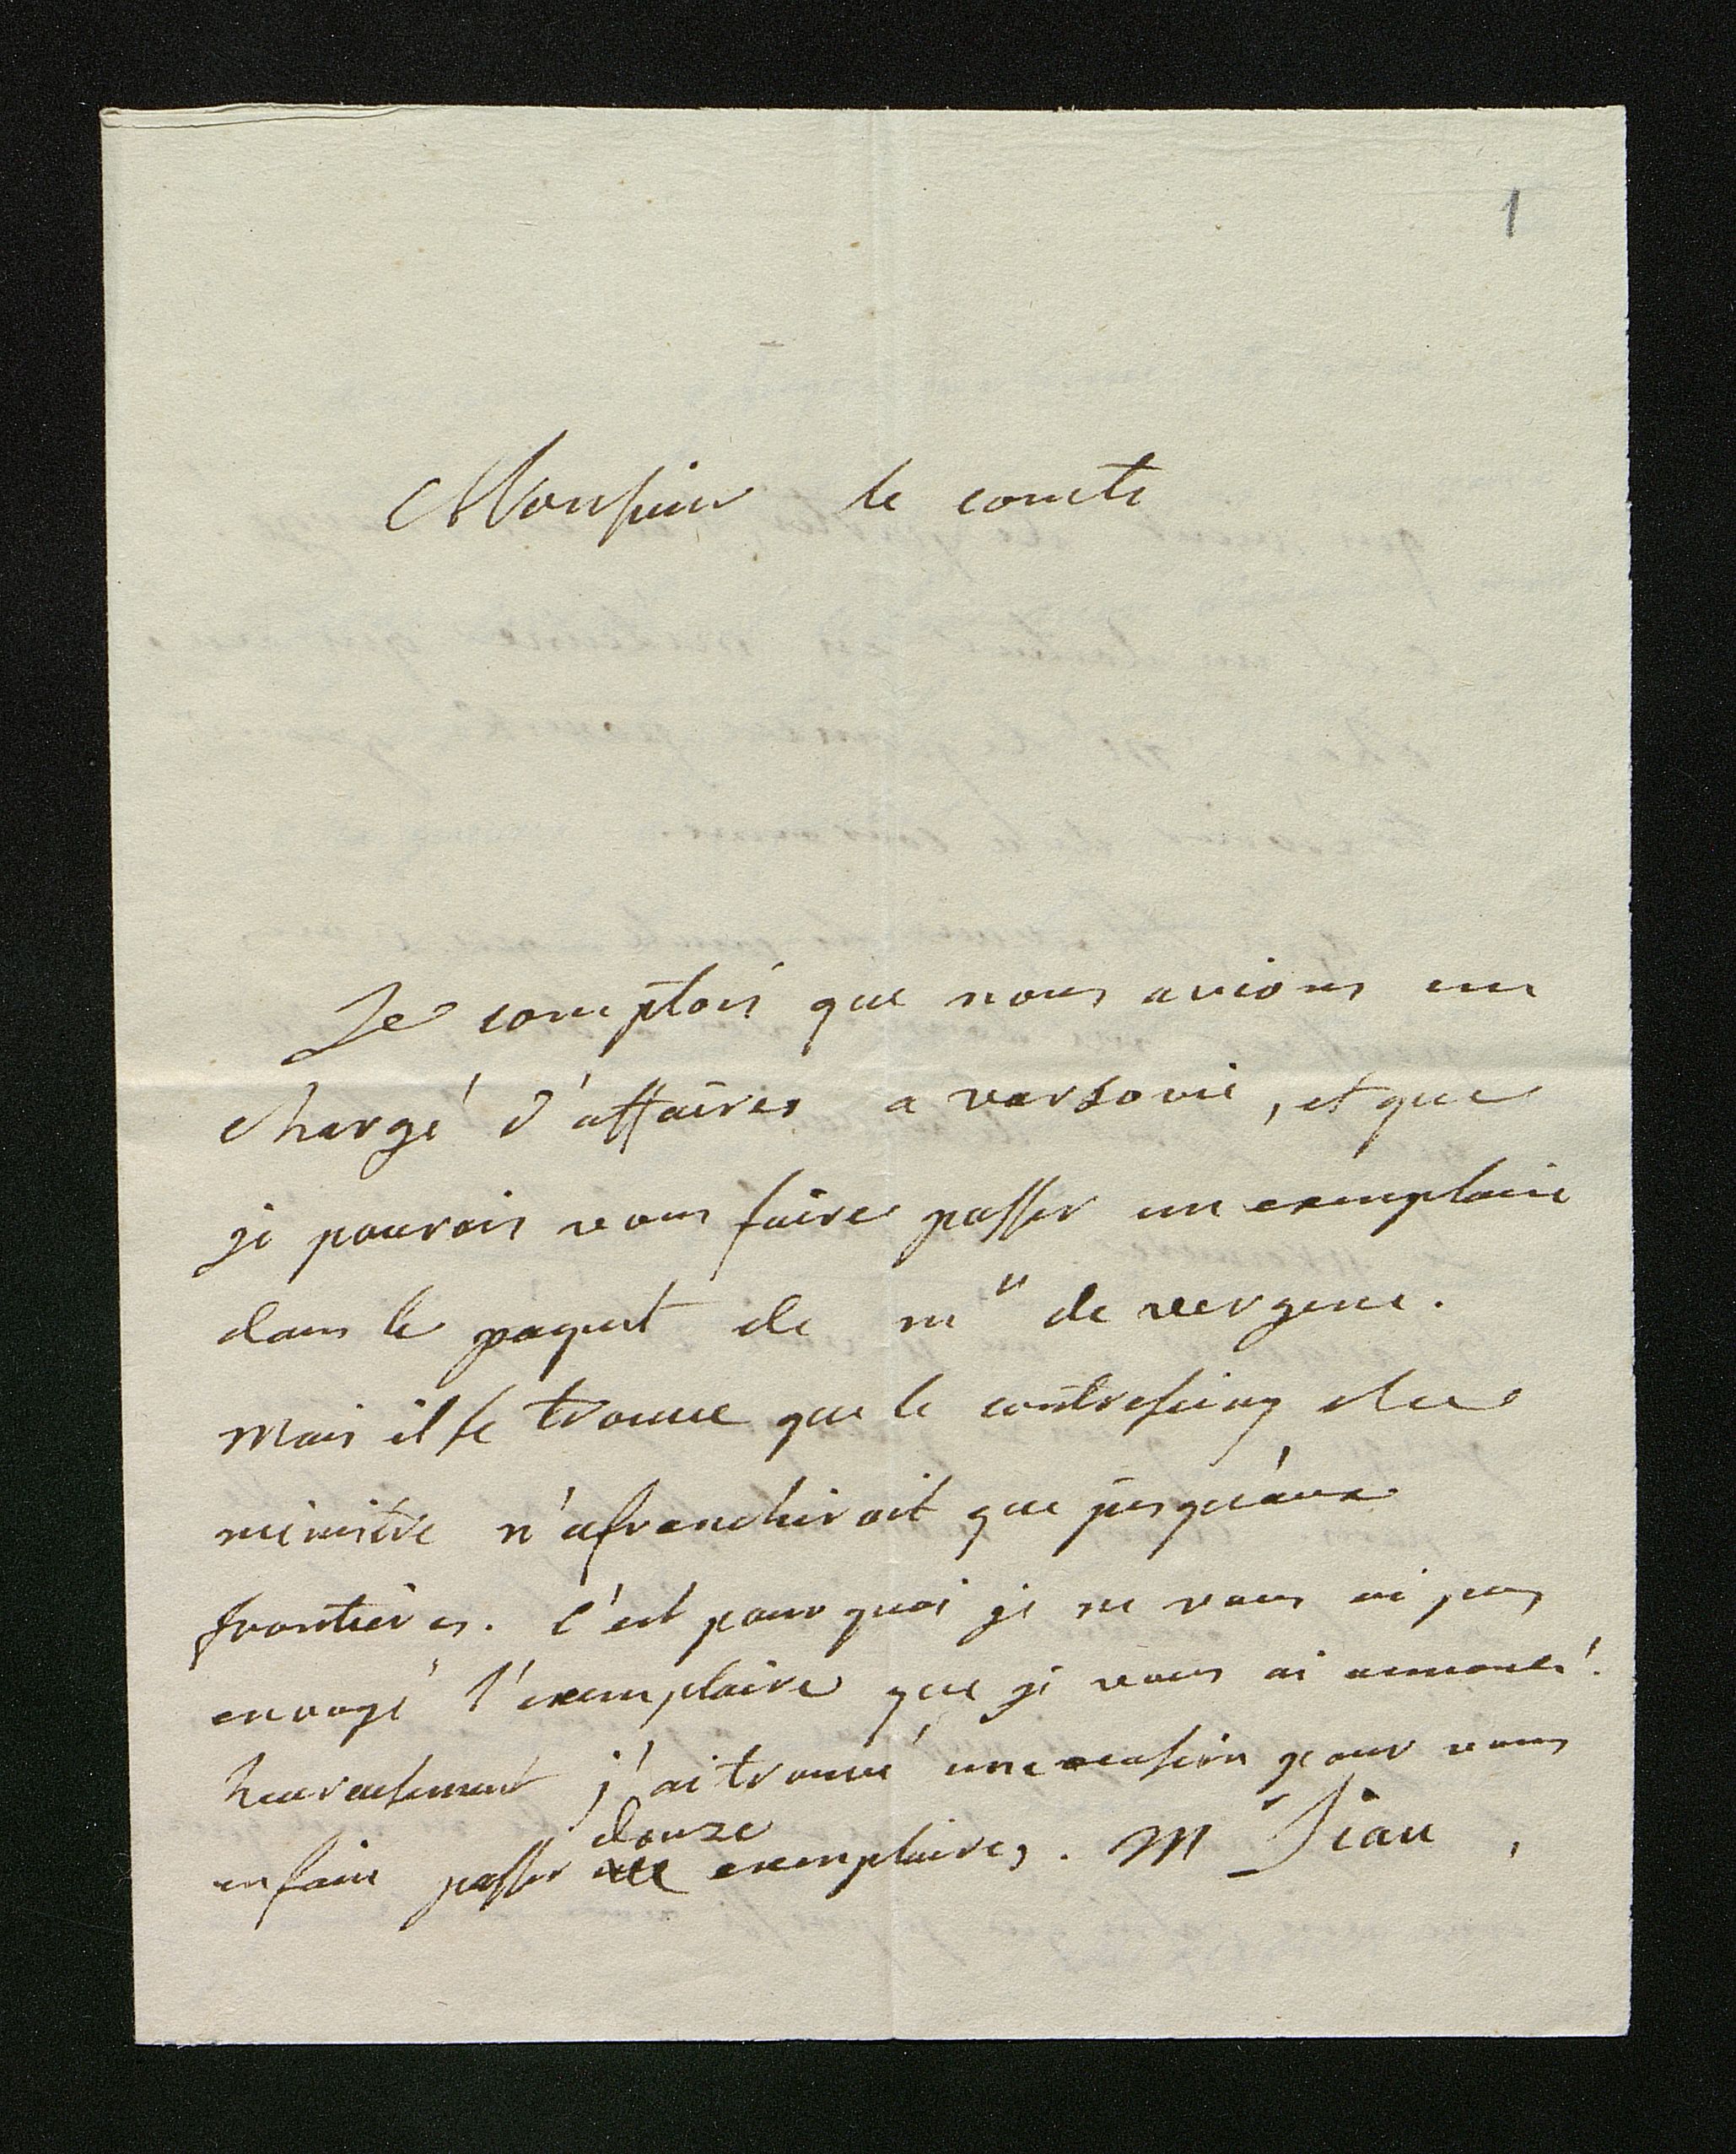 1
Monsieur le comte
Je comptois que nous avions un
chargé d'affaires a varsovie, et que
je pourois vous faire passer un exemplaire
dans le paquet de mr de vergene.
Mais il se trouve que le contreseing du
ministre n'afranchiroit que jusqu'aux
frontieres. C'est pour quoi je ne vous ai pas
envoyé l'exemplaire que je vous ai annoncé.
heureusement j'ai trouvé une ocasion pour vous
douze
en faire passer exemplaires. M